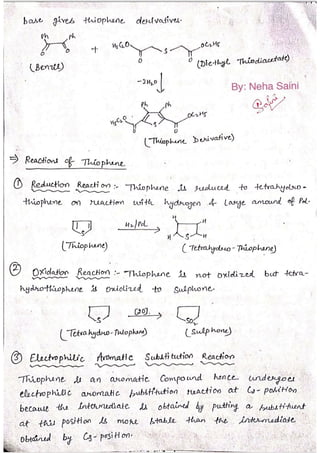 base gives thiophene derivatives.
Ph Ph
O O
(Benzil)
+
H5C2O S OC2H5
O O
(Diethyl Thiodiacetate)
-2H2O
By: Neha Saini
Saini
Ph Ph
H5C2O S OC2H5
O O
(Thiophene Derivative)
⇒ Reactions of Thiophene
① Reduction Reaction :- Thiophene is reduced to tetrahydro-
thiophene on reaction with hydrogen & large amound of Pd.
S H2/Pd. H H H H S
(Thiophene) (Tetrahydro-Thiophene)
② Oxidation Reaction :- Thiophene is not oxidized but tetra-
hydrothiophene is oxidized to sulphone.
S (2O). SO2
(Tetrahydro-Thiophene) (Sulphone)
③ Electrophilic Aromatic Substitution Reaction
Thiophene is an aromatic Compound hence undergoes
electrophilic aromatic substitution reaction at C2-position
because the intermediate is obtained by putting a substituent
at this position is more stable than the intermediate
obtained by C3-position.